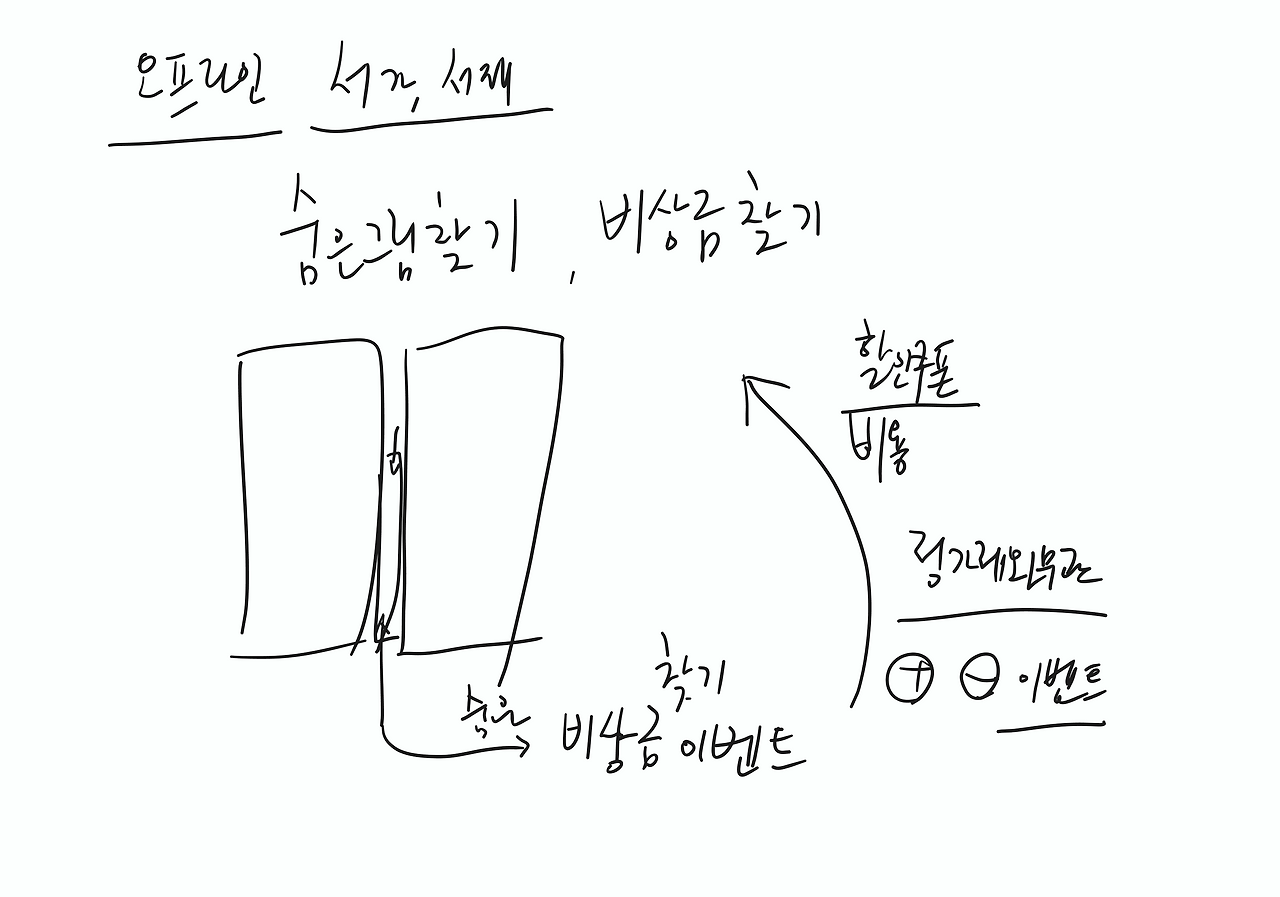 오프라인 서가, 서재
숨은그림찾기, 비상금찾기
할인쿠폰
비용
⊕ ⊖ 이벤트
찾기
숨은 비상금 이벤트